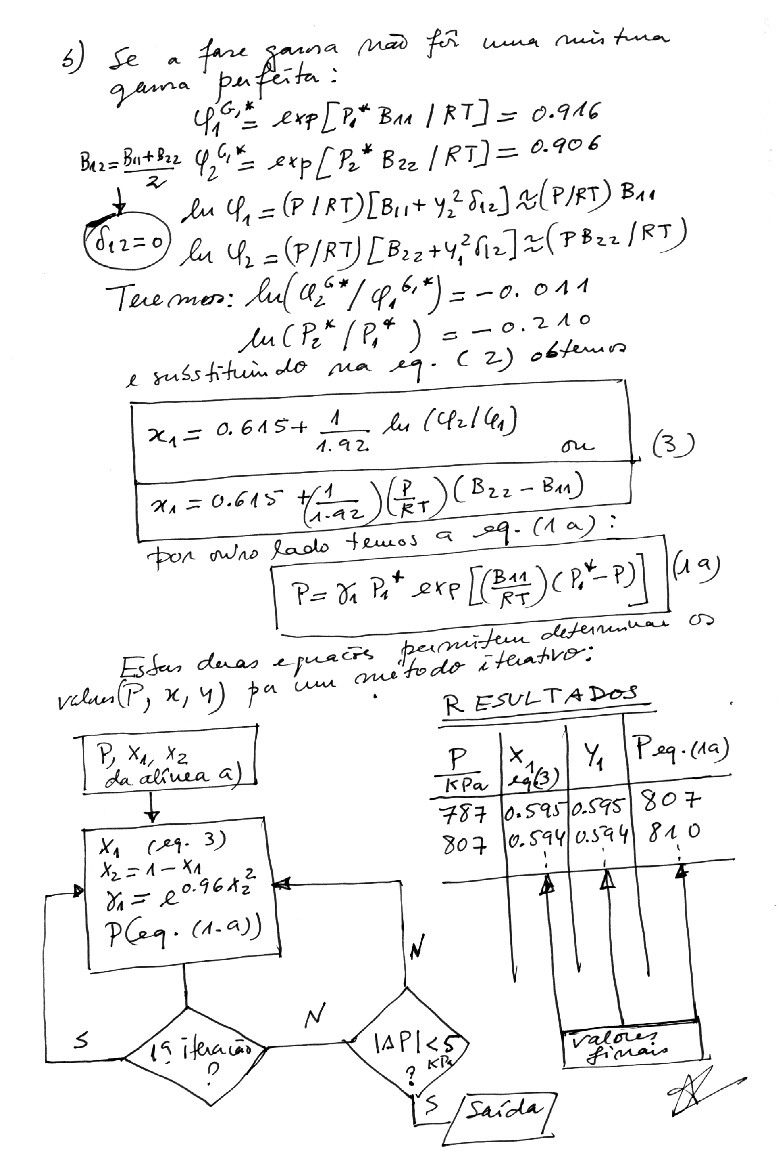 b) Se a fase gasosa não fôr uma mistura
gasosa perfeita:
φ₁^G,* = exp[P₁* B₁₁ / RT] = 0.916
B₁₂ = (B₁₁ + B₂₂)/2 φ₂^G,* = exp[P₂* B₂₂ / RT] = 0.906
ln φ₁ = (P/RT)[B₁₁ + y₂² δ₁₂] ≈ (P/RT) B₁₁
δ₁₂ = 0 ln φ₂ = (P/RT)[B₂₂ + y₁² δ₁₂] ≈ (P B₂₂ / RT)
Teremos: ln(φ₂^G* / φ₁^G,*) = -0.011
ln(P₂* / P₁*) = -0.210
e substituindo na eq. (2) obtemos
x₁ = 0.615 + 1/1.92 ln (φ₂/φ₁)
ou (3)
x₁ = 0.615 + (1/1.92)(P/RT)(B₂₂ - B₁₁)
por outro lado temos a eq. (1a):
P = γ₁ P₁* exp[(B₁₁/RT)(P₁* - P)] (1a)
Estas duas equações permitem determinar os
valores (P, x, y) por um método iterativo:
RESULTADOS
P, x₁, x₂
da alínea a)
P/KPa x₁ eq.(3) y₁ P eq.(1a)
787 0.595 0.595 807
807 0.594 0.594 810
x₁ (eq. 3)
x₂ = 1 - x₁
γ₁ = e^0.96x₂²
P(eq. (1-a))
N
S
1ª iteração
?
N
|ΔP| < 5
KPa
?
S
Saída
valores
finais